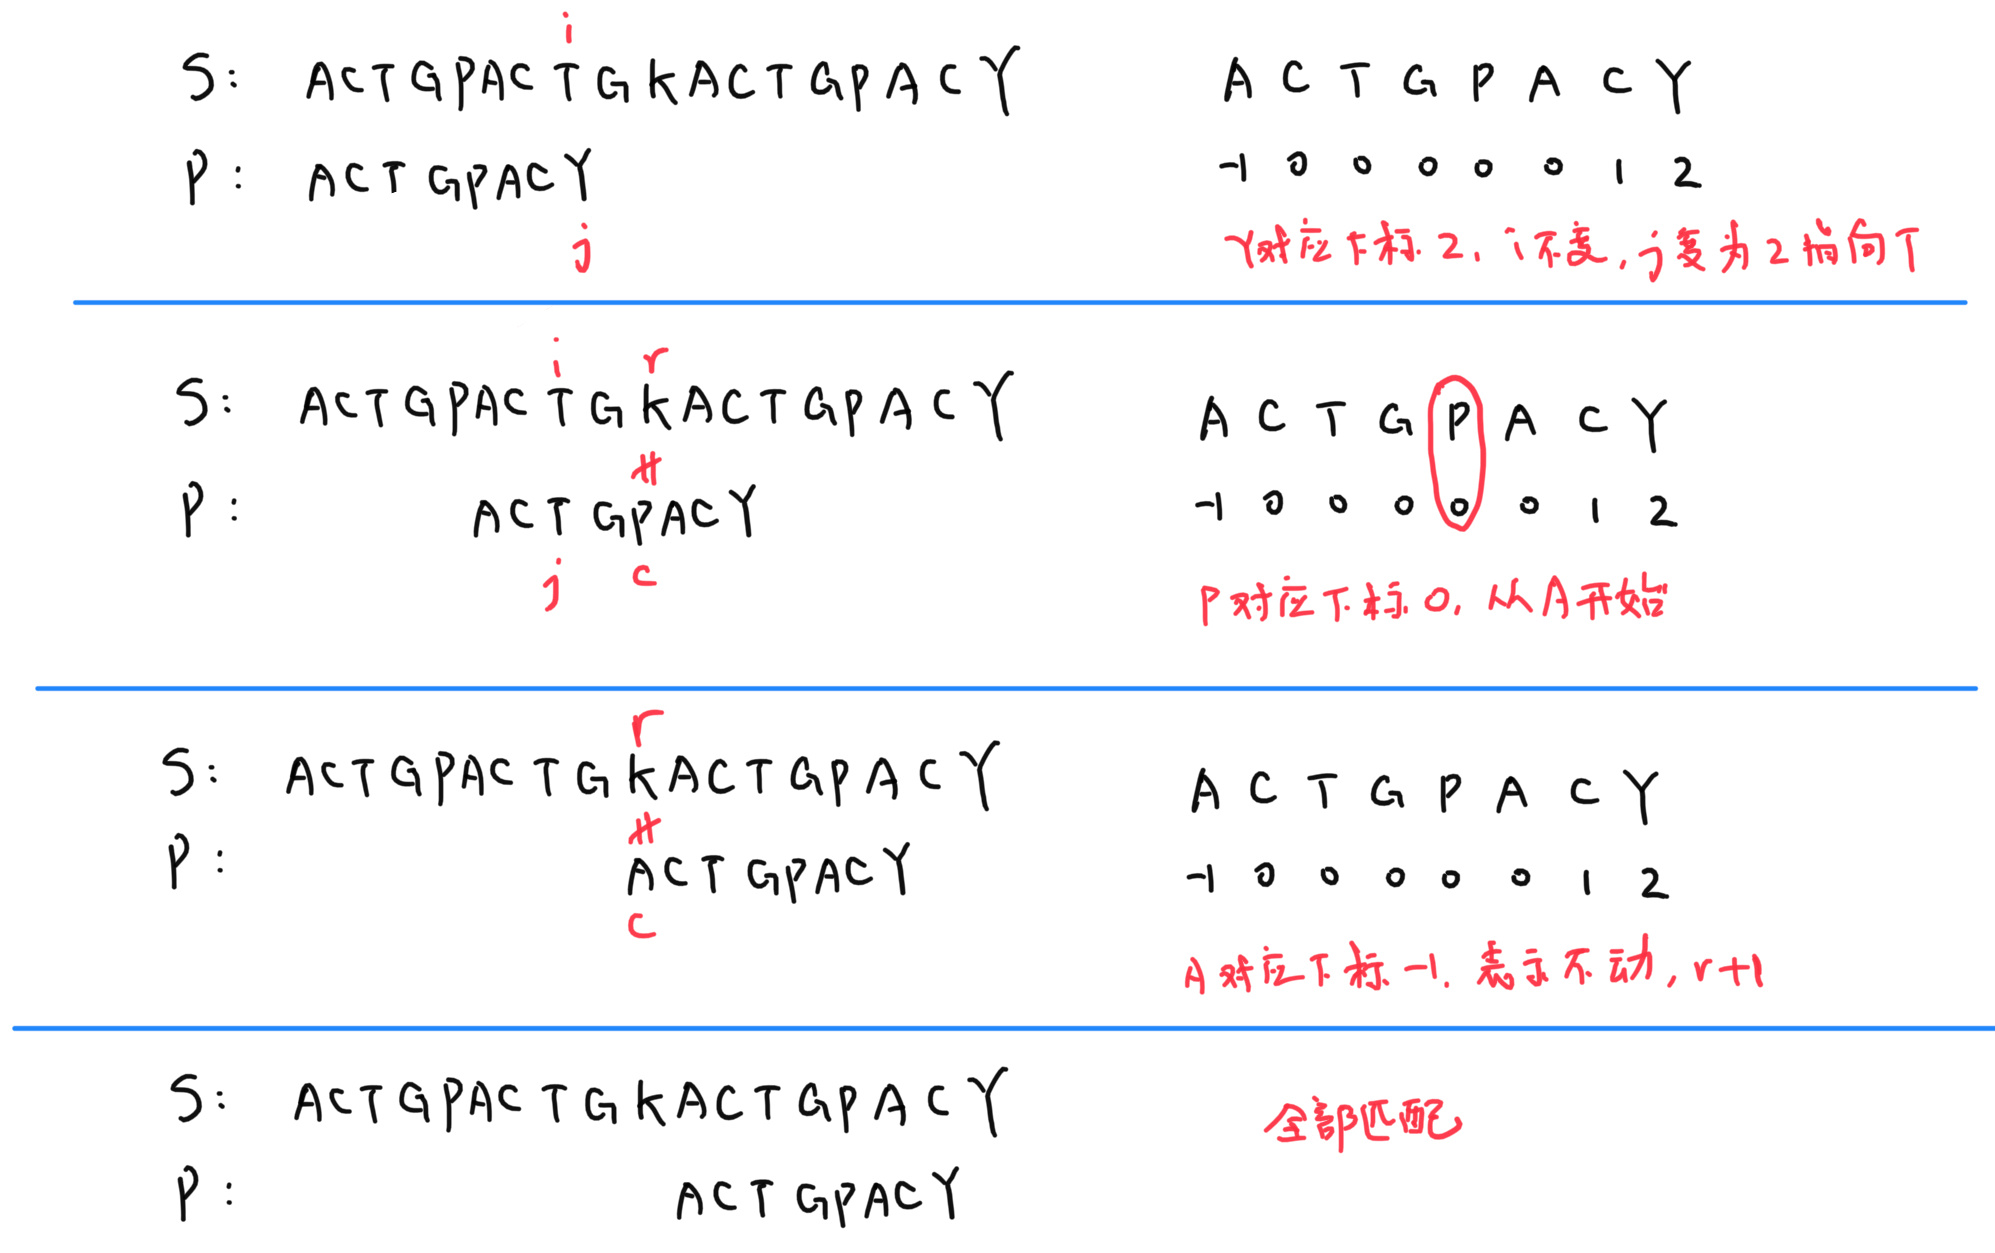 i
S: ACTGPACTGKACTGPACY
A C T G P A C Y
P: ACTGPACY
-1 0 0 0 0 0 1 2
j
Y对应下标2, i不变, j变为2指向T
i r
S: ACTGPACTGKACTGPACY
A C T G P A C Y
P: ACTGPACY
-1 0 0 0 0 0 1 2
j c
P对应下标0, 从A开始
r
S: ACTGPACTGKACTGPACY
A C T G P A C Y
P: ACTGPACY
-1 0 0 0 0 0 1 2
c
A对应下标-1. 表示不动, r+1
S: ACTGPACTGKACTGPACY
全部匹配
P: ACTGPACY